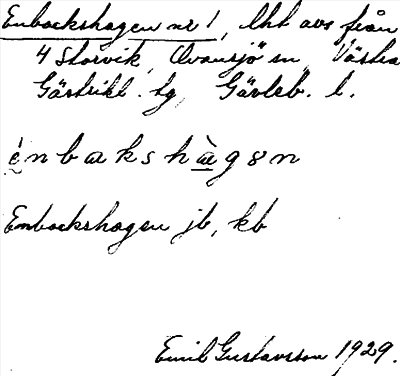 Enbackshagen nr 1, lht avs från
4 Storvik, Ovansjö sn, Västra
Gästrikl. tg, Gävleb. l.
énbakshàgən
Enbackshagen jb, kb
Emil Gustavsson 1929.